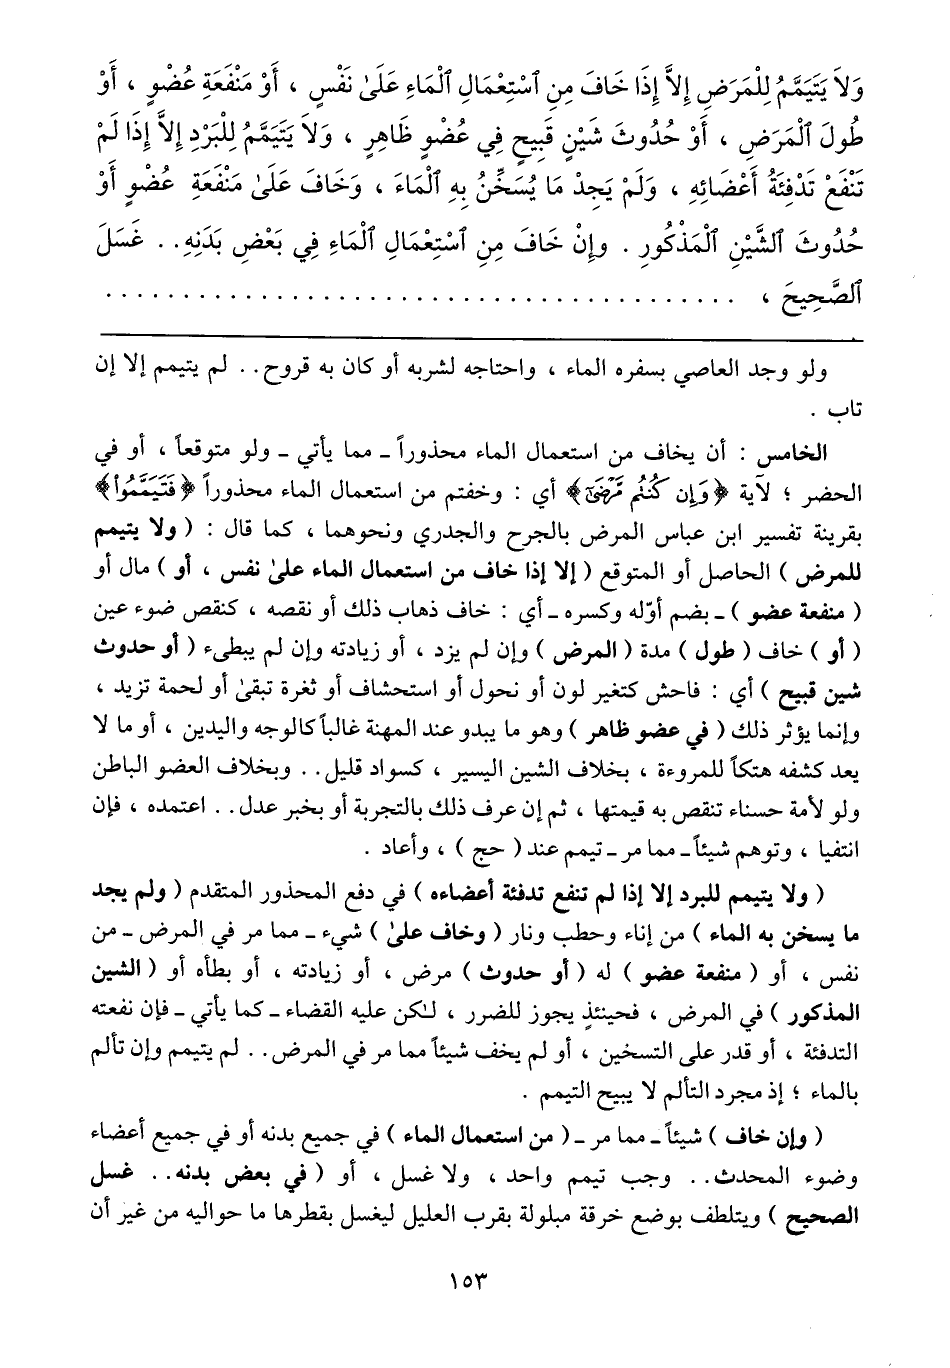 وَلاَ يَتَيَمَّمُ لِلْمَرَضِ إِلاَّ إِذَا خَافَ مِنِ ٱسْتِعْمَالِ ٱلْمَاءِ عَلَىٰ نَفْسٍ ، أَوْ مَنْفَعَةِ عُضْوٍ ، أَوْ
طُولَ ٱلْمَرَضِ ، أَوْ حُدُوثَ شَيْنٍ قَبِيحٍ فِي عُضْوٍ ظَاهِرٍ ، وَلاَ يَتَيَمَّمُ لِلْبَرْدِ إِلاَّ إِذَا لَمْ
تَنْفَعْ تَدْفِئَةُ أَعْضَائِهِ ، وَلَمْ يَجِدْ مَا يُسَخِّنُ بِهِ ٱلْمَاءَ ، وَخَافَ عَلَىٰ مَنْفَعَةِ عُضْوٍ أَوْ
حُدُوثَ ٱلشَّيْنِ ٱلْمَذْكُورِ . وِإِنْ خَافَ مِنِ ٱسْتِعْمَالِ ٱلْمَاءِ فِي بَعْضِ بَدَنِهِ.. غَسَلَ
ٱلصَّحِيحَ ، . . . . . . . . . . . . . . . . . . . . . . . . . . . . . . . . . . . . . . . .
ولو وجد العاصي بسفره الماء ، واحتاجه لشربه أو كان به قروح.. لم يتيمم إلا إن
تاب .
الخامس : أن يخاف من استعمال الماء محذوراً ـ مما يأتي ـ ولو متوقعاً ، أو في
الحضر ؛ لآية ﴿ وَإِن كُنتُم مَّرْضَىٰٓ ﴾ أي : وخفتم من استعمال الماء محذوراً ﴿ فَتَيَمَّمُواْ ﴾
بقرينة تفسير ابن عباس المرض بالجرح والجدري ونحوهما ، كما قال : ( ولا يتيمم
للمرض ) الحاصل أو المتوقع ( إلا إذا خاف من استعمال الماء علىٰ نفس ، أو ) مال أو
( منفعة عضو ) ـ بضم أوّله وكسره ـ أي : خاف ذهاب ذلك أو نقصه ، كنقص ضوء عين
( أو ) خاف ( طول ) مدة ( المرض ) وإن لم يزد ، أو زيادته وإن لم يبطىء ( أو حدوث
شين قبيح ) أي : فاحش كتغير لون أو نحول أو استحشاف أو ثغرة تبقىٰ أو لحمة تزيد ،
وإنما يؤثر ذلك ( في عضو ظاهر ) وهو ما يبدو عند المهنة غالباً كالوجه واليدين ، أو ما لا
يعد كشفه هتكاً للمروءة ، بخلاف الشين اليسير ، كسواد قليل.. وبخلاف العضو الباطن
ولو لأمة حسناء تنقص به قيمتها ، ثم إن عرف ذلك بالتجربة أو بخبر عدل.. اعتمده ، فإن
انتفيا ، وتوهم شيئاً ـ مما مر ـ تيمم عند ( حج ) ، وأعاد .
( ولا يتيمم للبرد إلا إذا لم تنفع تدفئة أعضاءه ) في دفع المحذور المتقدم ( ولم يجد
ما يسخن به الماء ) من إناء وحطب ونار ( وخاف علىٰ ) شيء ـ مما مر في المرض ـ من
نفس ، أو ( منفعة عضو ) له ( أو حدوث ) مرض ، أو زيادته ، أو بطأه أو ( الشين
المذكور ) في المرض ، فحينئذٍ يجوز للضرر ، لـٰكن عليه القضاء ـ كما يأتي ـ فإن نفعته
التدفئة ، أو قدر على التسخين ، أو لم يخف شيئاً مما مر في المرض.. لم يتيمم وإن تألم
بالماء ؛ إذ مجرد التألم لا يبيح التيمم .
( وإن خاف ) شيئاً ـ مما مر ـ ( من استعمال الماء ) في جميع بدنه أو في جميع أعضاء
وضوء المحدث.. وجب تيمم واحد ، ولا غسل ، أو ( في بعض بدنه.. غسل
الصحيح ) ويتلطف بوضع خرقة مبلولة بقرب العليل ليغسل بقطرها ما حواليه من غير أن
١٥٣